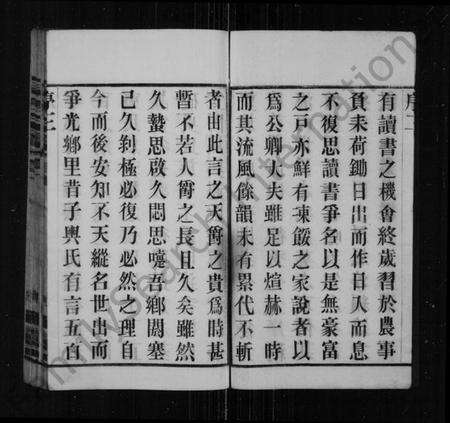 序二
有讀書之機會終歲習於農事
負耒荷鋤日出而作日入而息
不復思讀書爭名以是無豪富
之戶亦鮮有凍餒之家說者以
為公卿大夫雖足以煊赫一時
而其流風餘韻未有累代不斬
者由此言之天爵之貴為時甚
暫不若人爵之長且久矣雖然
久蟄思啟久悶思嚏吾鄉閼塞
已久剝極必復乃必然之理自
今而後安知不天縱名世出而
爭光鄉里昔子輿氏有言五百
序三